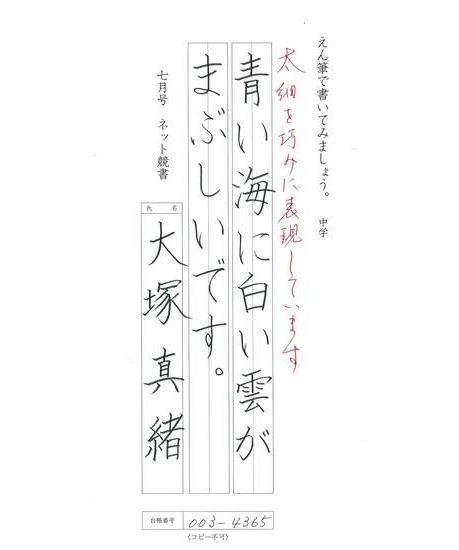 えん筆で書いてみましょう。 中学
太細を巧みに表現しています
青い海に白い雲が
まぶしいです。
七月号 ネット競書
氏名
大塚真緒
台帳番号 003-4365
(コピー不可)